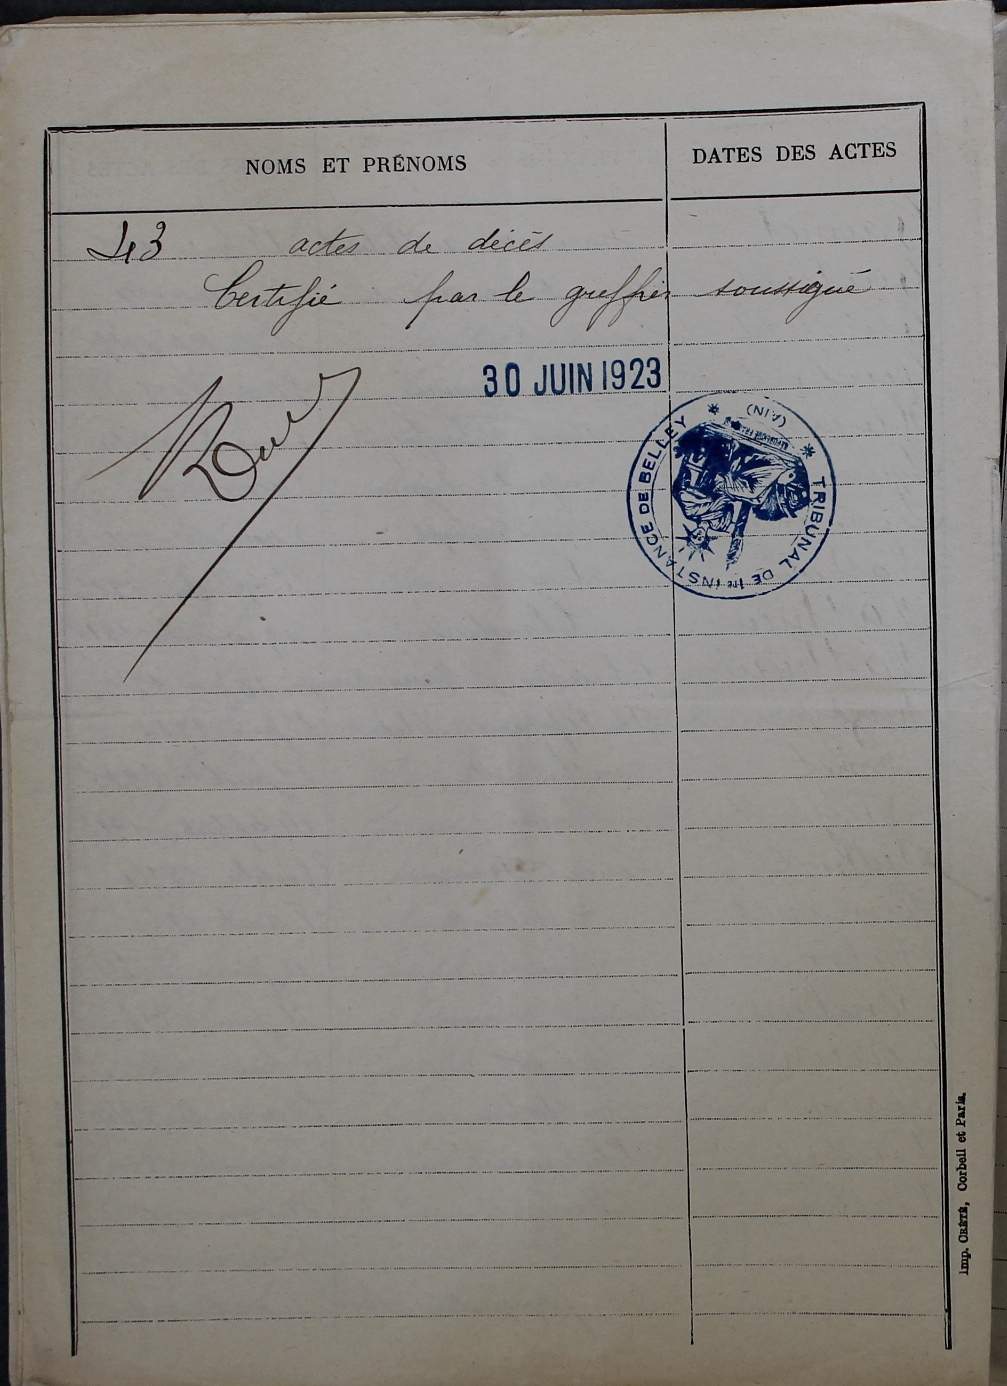 NOMS ET PRÉNOMS
DATES DES ACTES
43 actes de décès
Certifié par le greffier soussigné
30 JUIN 1923
TRIBUNAL DE 1re INSTANCE DE BELLEY * (AIN) *
Imp. CRÉTÉ, Corbeil et Paris.